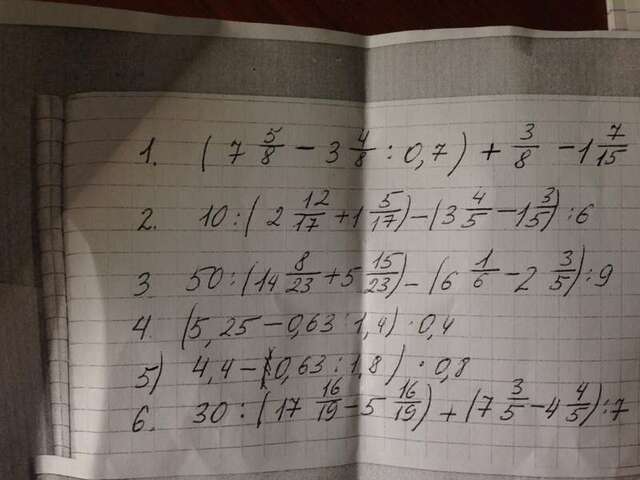 1. (7 5/8 - 3 4/8 : 0,7) + 3/8 - 1 7/15
2. 10 : (2 12/17 + 1 5/17) - (3 4/5 - 1 3/5) : 6
3. 50 : (14 8/23 + 5 15/23) - (6 1/6 - 2 3/5) : 9
4. (5,25 - 0,63 : 1,4) · 0,4
5) 4,4 - (0,63 : 1,8) · 0,8
6. 30 : (17 16/19 - 5 16/19) + (7 3/5 - 4 4/5) : 7